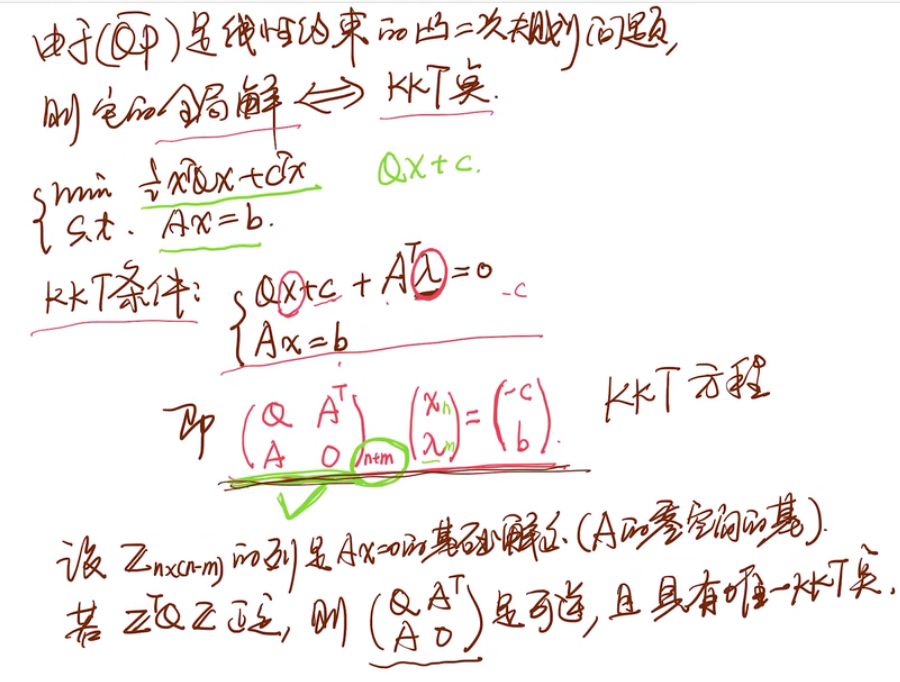 由于(QP)是线性约束的凸二次规划问题,
则它的全局解 ⟺ KKT点.
{ min ½xᵀQx+cᵀx   Qx+c.
{ s.t. Ax=b.
KKT条件: { Qx+c+Aᵀλ=0   -c
{ Ax=b
即 (Q Aᵀ; A 0)n+m (xn; λm) = (-c; b). KKT方程
设 Zn×(n-m) 的列是Ax=0的基础解系(A的零空间的基).
若 ZᵀQZ正定, 则 (Q Aᵀ; A 0) 是可逆, 且具有唯一KKT点.